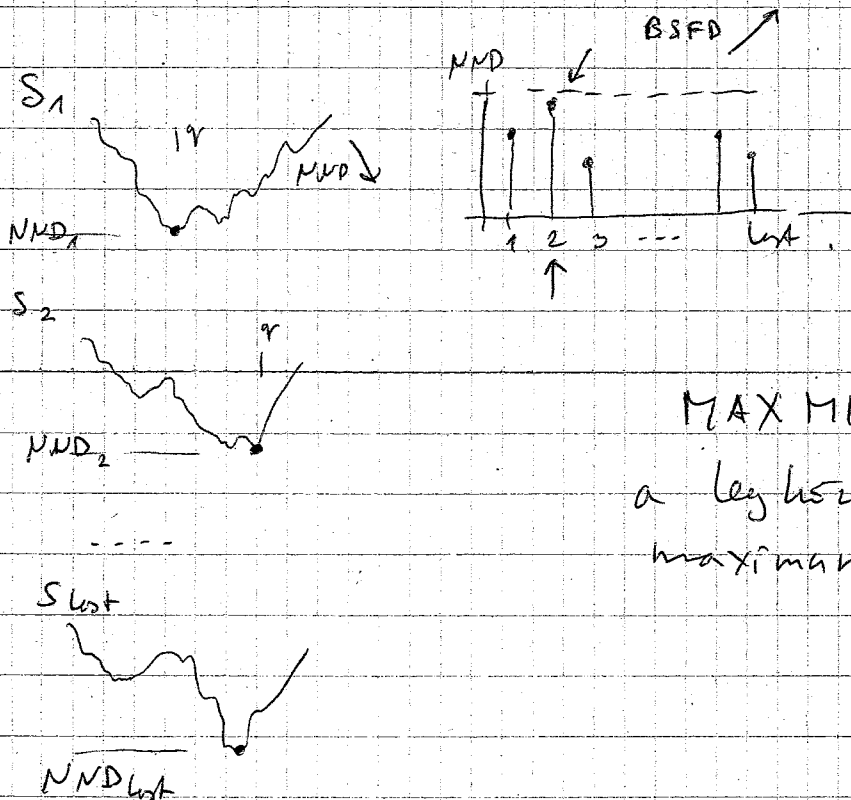 BSFD
NND
S1
q
NND
NND1
1 2 3 --- last
S2
q
NND2
MAX MI
a leg köz
maximan
-----
S last
NND last